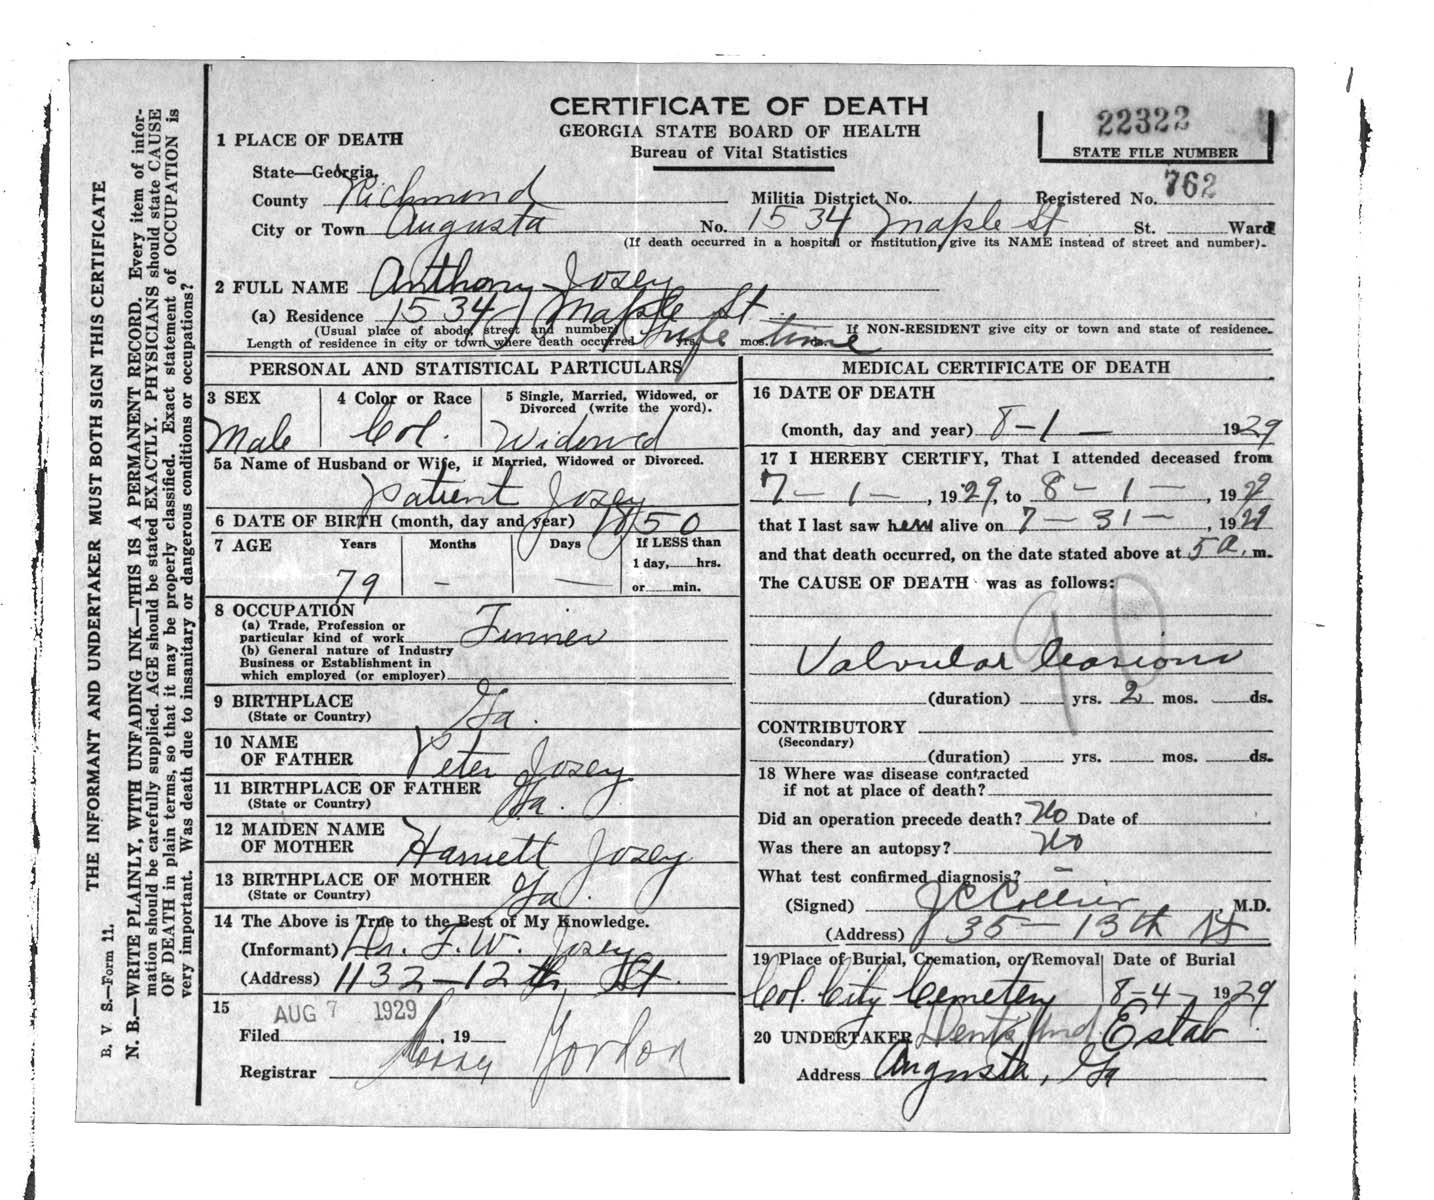 CERTIFICATE OF DEATH
GEORGIA STATE BOARD OF HEALTH
Bureau of Vital Statistics
22322
STATE FILE NUMBER
1 PLACE OF DEATH
State—Georgia,
County Richmond Militia District No. Registered No. 762
City or Town Augusta No. 1534 Maple St St. Ward
(If death occurred in a hospital or institution, give its NAME instead of street and number).
2 FULL NAME Anthony Josey
(a) Residence 1534 Maple St
(Usual place of abode, street and number) If NON-RESIDENT give city or town and state of residence.
Length of residence in city or town where death occurred Life time yrs. mos.
PERSONAL AND STATISTICAL PARTICULARS
3 SEX
Male
4 Color or Race
Col.
5 Single, Married, Widowed, or Divorced (write the word).
Widowed
5a Name of Husband or Wife, if Married, Widowed or Divorced.
Patient Josey
6 DATE OF BIRTH (month, day and year) 1850
7 AGE Years Months Days If LESS than
1 day, hrs.
79 - — or min.
8 OCCUPATION
(a) Trade, Profession or
particular kind of work
(b) General nature of Industry
Business or Establishment in
which employed (or employer)
9 BIRTHPLACE Ga.
(State or Country)
10 NAME
OF FATHER Peter Josey
11 BIRTHPLACE OF FATHER Ga.
(State or Country)
12 MAIDEN NAME
OF MOTHER Harriett Josey
13 BIRTHPLACE OF MOTHER Ga.
(State or Country)
14 The Above is True to the Best of My Knowledge.
(Informant) F. W. Josey
(Address) 1132-12th St.
15 AUG 7 1929
Filed , 19
Registrar Gordon
MEDICAL CERTIFICATE OF DEATH
16 DATE OF DEATH
(month, day and year) 8-1— 1929
17 I HEREBY CERTIFY, That I attended deceased from
7-1-, 1929, to 8-1-, 1929
that I last saw him alive on 7-31-, 1929
and that death occurred, on the date stated above at 5 a. m.
The CAUSE OF DEATH was as follows:
90
Valvular leasions
(duration) yrs. 2 mos. ds.
CONTRIBUTORY
(Secondary)
(duration) yrs. mos. ds.
18 Where was disease contracted
if not at place of death?
Did an operation precede death? No Date of
Was there an autopsy? No
What test confirmed diagnosis? -
(Signed) J C Collier, M.D.
(Address) 35-13th St
19 Place of Burial, Cremation, or Removal Date of Burial
Col. City Cemetery 8-4- 1929
20 UNDERTAKER Und. Estab
Address Augusta, Ga
B. V. S.—Form 11. THE INFORMANT AND UNDERTAKER MUST BOTH SIGN THIS CERTIFICATE
N. B.—WRITE PLAINLY, WITH UNFADING INK—THIS IS A PERMANENT RECORD. Every item of infor-
mation should be carefully supplied. AGE should be stated EXACTLY. PHYSICIANS should state CAUSE
OF DEATH in plain terms, so that it may be properly classified. Exact statement of OCCUPATION is
very important. Was death due to insanitary or dangerous conditions or occupations?